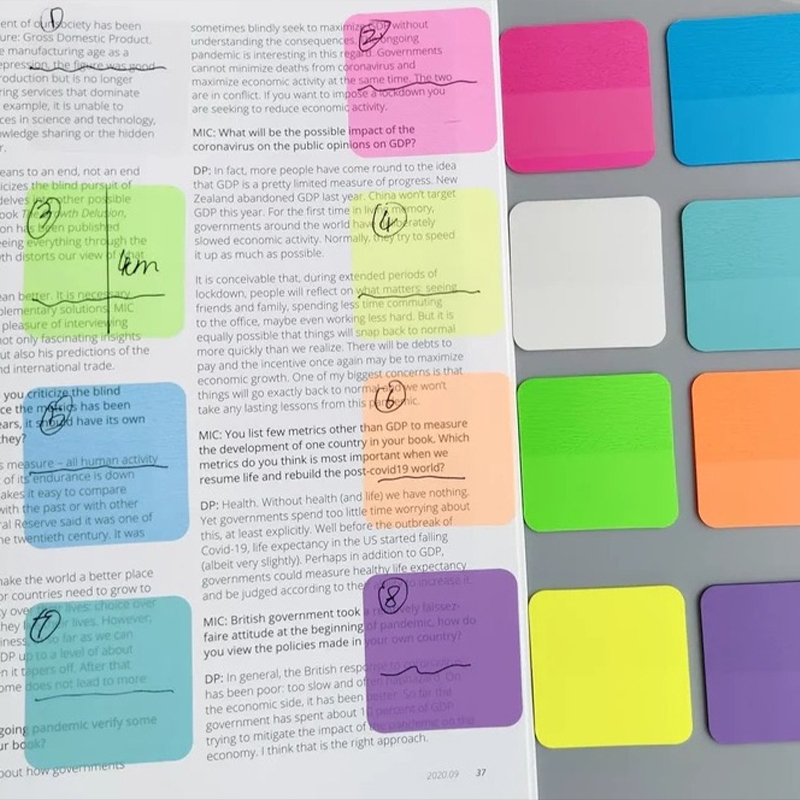 ent of our society has been
ure: Gross Domestic Product.
e manufacturing age as a
epression, the figure was good
roduction but is no longer
ring services that dominate
example, it is unable to
ces in science and technology,
owledge sharing or the hidden
r.
eans to an end, not an end
icizes the blind pursuit of
delves into other possible
ook The Growth Delusion,
on has been published
eeing everything through the
th distorts our view of what
ean better. It is necessary
plementary solutions. MIC
pleasure of interviewing
not only fascinating insights
ut also his predictions of the
nd international trade.
you criticize the blind
ce the metrics has been
ears, it should have its own
they?
s measure – all human activity
of its endurance is down
akes it easy to compare
with the past or with other
ral Reserve said it was one of
he twentieth century. It was
make the world a better place
or countries need to grow to
ty over their lives: choice over
they lead their lives. However,
iness so far as we can
DP up to a level of about
n it tapers off. After that
ome does not lead to more
going pandemic verify some
ur book?
bout how governments
1
3
4cm
5
7
sometimes blindly seek to maximize GDP without
understanding the consequences. The ongoing
pandemic is interesting in this regard. Governments
cannot minimize deaths from coronavirus and
maximize economic activity at the same time. The two
are in conflict. If you want to impose a lockdown you
are seeking to reduce economic activity.
MIC: What will be the possible impact of the
coronavirus on the public opinions on GDP?
DP: In fact, more people have come round to the idea
that GDP is a pretty limited measure of progress. New
Zealand abandoned GDP last year. China won't target
GDP this year. For the first time in living memory,
governments around the world have deliberately
slowed economic activity. Normally, they try to speed
it up as much as possible.
It is conceivable that, during extended periods of
lockdown, people will reflect on what matters: seeing
friends and family, spending less time commuting
to the office, maybe even working less hard. But it is
equally possible that things will snap back to normal
more quickly than we realize. There will be debts to
pay and the incentive once again may be to maximize
economic growth. One of my biggest concerns is that
things will go exactly back to normal and we won't
take any lasting lessons from this pandemic.
MIC: You list few metrics other than GDP to measure
the development of one country in your book. Which
metrics do you think is most important when we
resume life and rebuild the post-covid19 world?
DP: Health. Without health (and life) we have nothing.
Yet governments spend too little time worrying about
this, at least explicitly. Well before the outbreak of
Covid-19, life expectancy in the US started falling
(albeit very slightly). Perhaps in addition to GDP,
governments could measure healthy life expectancy
and be judged according to their ability to increase it.
MIC: British government took a relatively laissez-
faire attitude at the beginning of pandemic, how do
you view the policies made in your own country?
DP: In general, the British response to
has been poor: too slow and often On
the economic side, it has been better. So far the
government has spent about 10 percent of GDP
trying to mitigate the impact of the pandemic on the
economy. I think that is the right approach.
2
4
6
8
2020.09 37